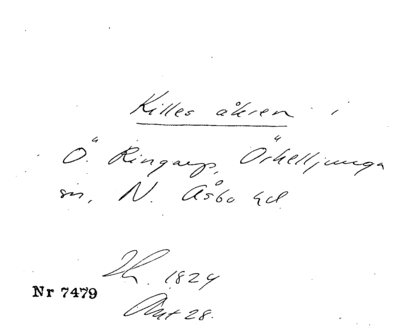 Killes åkren i
Ö. Ringarp, Örkelljunga
sn, N. Åsbo hd
1824
Nr 7479
Ant 28.